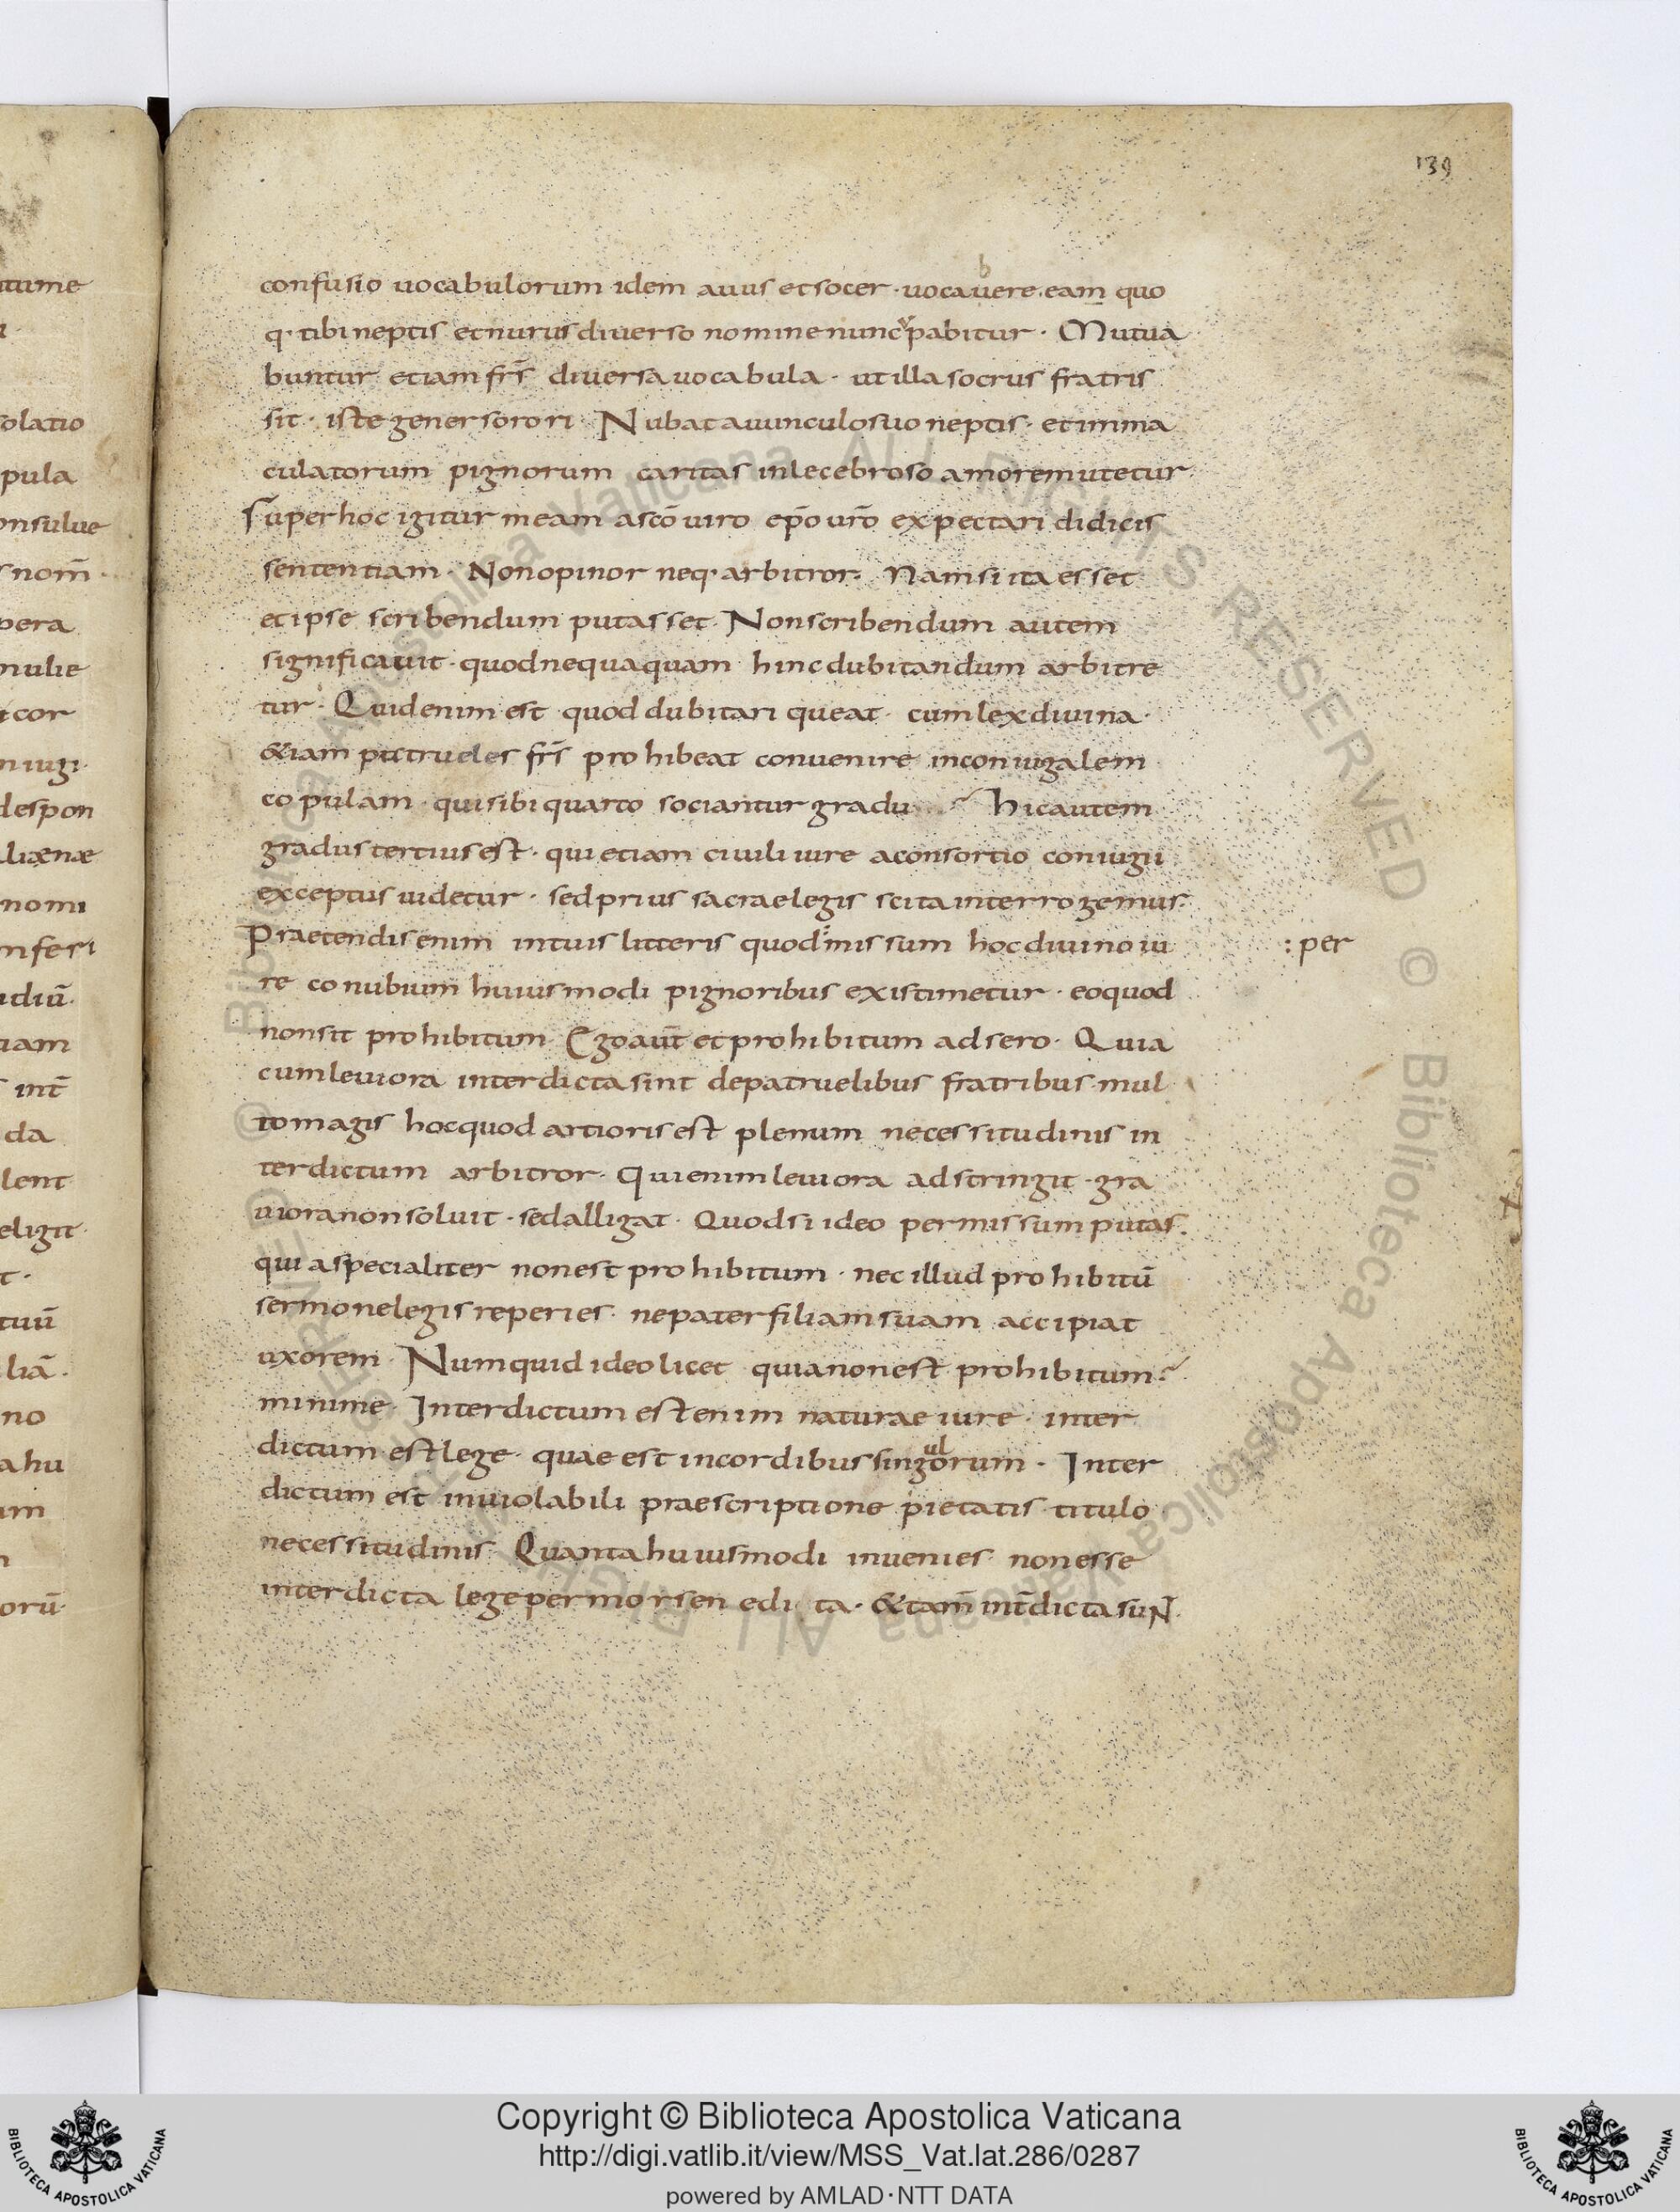 139
confusio uocabulorum idem auus et socer · uocauere. eam quo
b
q· tibi neptis et nurus diuerso nomine nuncvpabitur · Mutua
buntur etiam frs̄ diuersa uocabula · ut illa socrus fratris
sit · iste gener sorori · Nubat auunculo suo neptis · et inma
culatorum pignorum caritas inlecebroso amore mutetur
Super hoc igitur meam a scō uiro ep̄o ur̄o expectari didicis
sententiam · Non opinor neq· arbitror · Nam si ita esset
et ipse scribendum putasset · Non scribendum autem
significauit · quod nequaquam hinc dubitandum arbitre
tur · Quid enim est quod dubitari queat · cum lex diuina ·
&iam patrueles frs̄ prohibeat conuenire in coniugalem
copulam · qui sibi quarto sociantur gradu Hic autem
gradus tertius est · qui etiam ciuili iure a consortio coniugii
exceptus uidetur · sed prius sacrae legis scita interrogemus ·
Praetendis enim in tuis litteris quod :missum hoc diuino iu
: per
re conubium huiusmodi pignoribus existimetur · eo quod
non sit prohibitum · Ego aut̄ et prohibitum adsero · Quia
cum leuiora interdicta sint de patruelibus fratribus · mul
to magis hoc quod artioris est plenum necessitudinis in
terdictum arbitror · Qui enim leuiora adstringit · gra
uiora non soluit · sed alligat · Quod si ideo permissum putas ·
quia specialiter non est prohibitum · nec illud prohibitū
sermone legis reperies · ne pater filiam suam accipiat
uxorem · Numquid ideo licet quia non est prohibitum?
minime · Interdictum est enim naturae iure · inter
dictum est lege · quae est in cordibus singulorum · Inter
dictum est inuiolabili praescriptione pietatis · titulo
necessitudinis · Quanta huiusmodi inuenies · non esse
interdicta lege per morsen edi ta · & tam̄ int̄dicta sunt
atume
olatio
pula
onsulue
s nom̄ ·
pera
mulie
cor
niugi ·
despon
lienæ
nomi
nfesi
udiū ·
iam
int̄
da
lent
eligit ·
tuū
liā ·
no
a hu
um
orū ·
© Biblioteca Apostolica Vaticana ALL RIGHTS RESERVED © Biblioteca Apostolica Vaticana ALL RIGHTS RESERVED
BIBLIOTECA APOSTOLICA VATICANA
Copyright © Biblioteca Apostolica Vaticana
http://digi.vatlib.it/view/MSS_Vat.lat.286/0287
powered by AMLAD·NTT DATA
BIBLIOTECA APOSTOLICA VATICANA